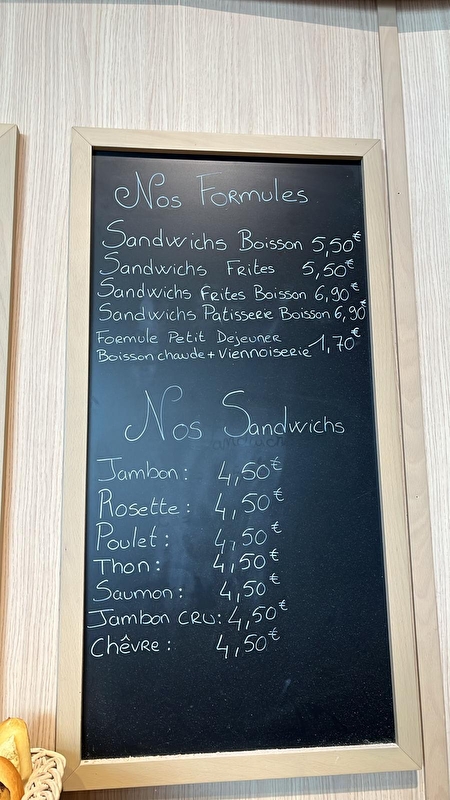 Nos Formules
Sandwichs Boisson 5,50€
Sandwichs Frites 5,50€
Sandwichs Frites Boisson 6,90€
Sandwichs Patisserie Boisson 6,90€
Formule Petit Dejeuner
Boisson chaude + Viennoiserie 1,70€
Nos Sandwichs
Jambon : 4,50€
Rosette : 4,50€
Poulet : 4,50€
Thon : 4,50€
Saumon : 4,50€
Jambon CRU : 4,50€
Chêvre : 4,50€